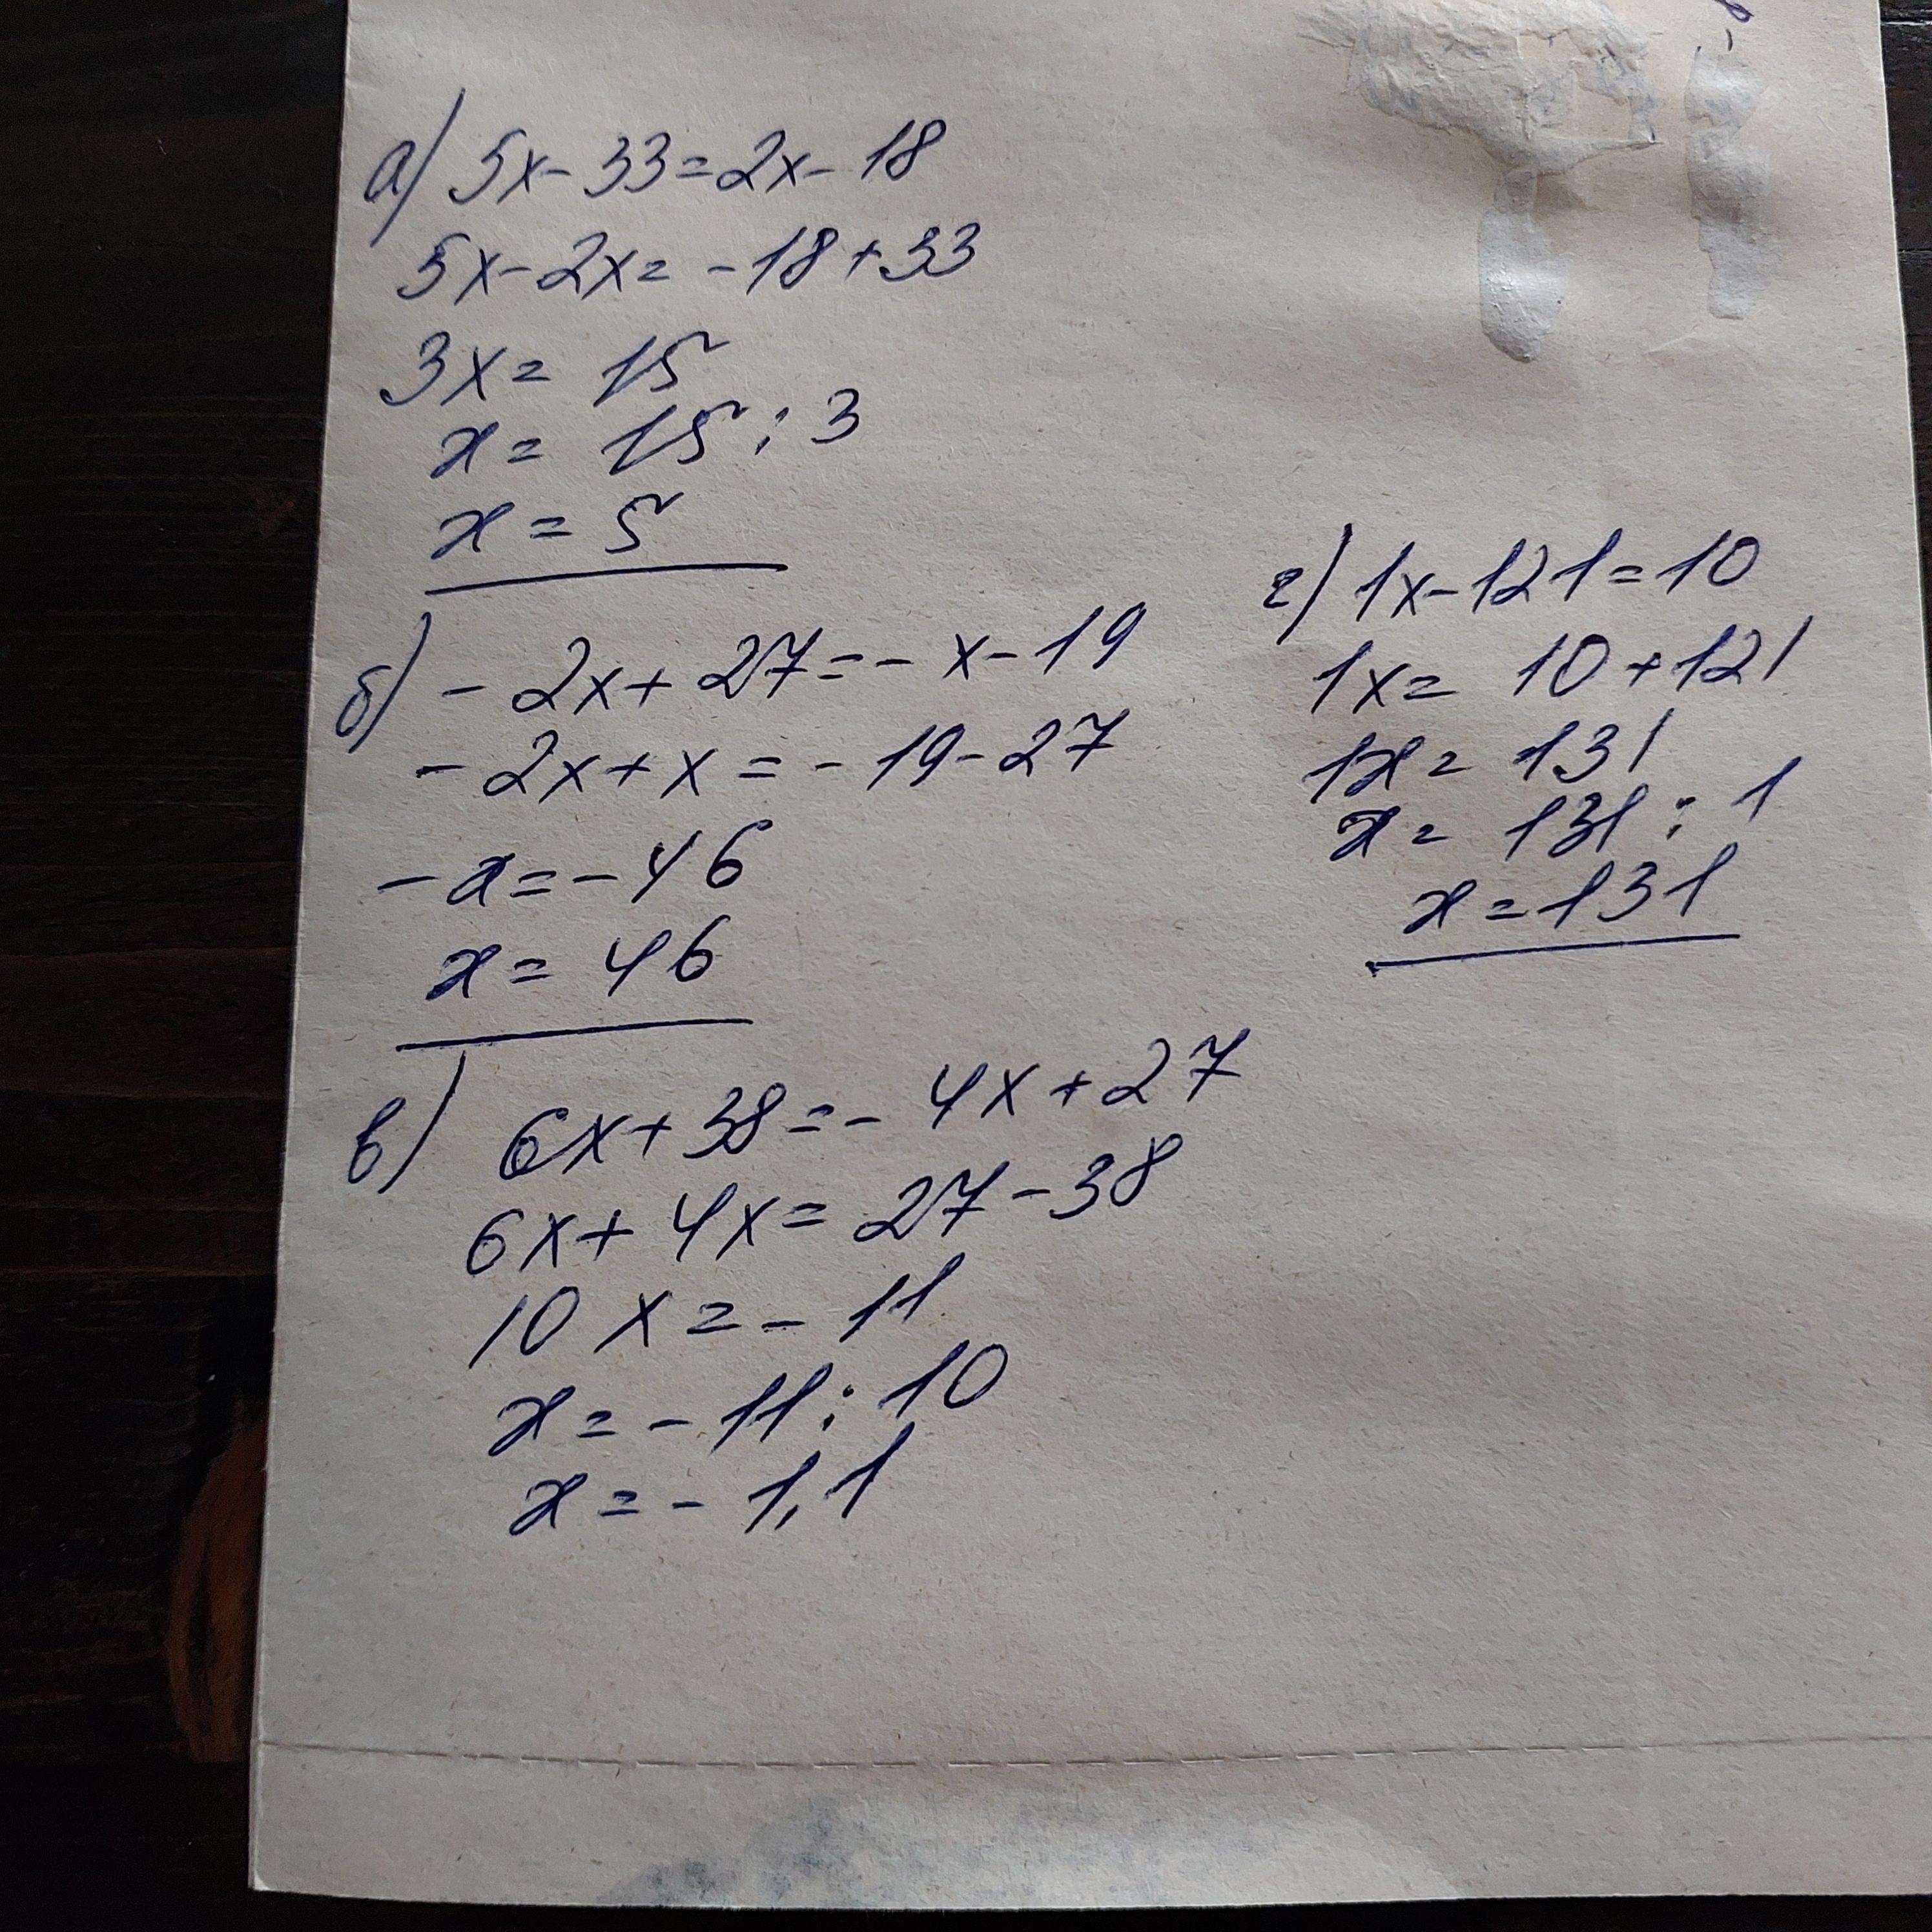 а) 5x-33=2x-18
5x-2x=-18+33
3x=15
x=15:3
x=5
б) -2x+27=-x-19
-2x+x=-19-27
-x=-46
x=46
в) 6x+38=-4x+27
6x+4x=27-38
10x=-11
x=-11:10
x=-1,1
г) 1x-121=10
1x=10+121
1x=131
x=131:1
x=131